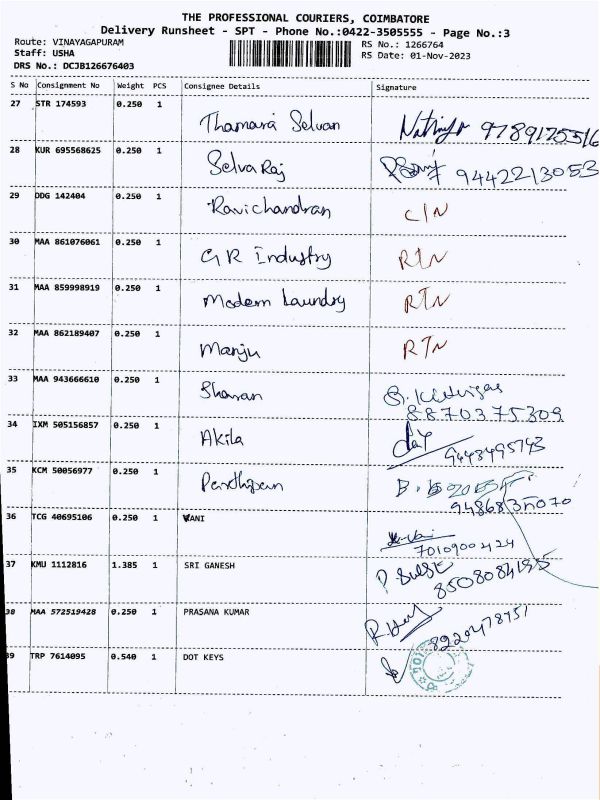 THE PROFESSIONAL COURIERS, COIMBATORE
Delivery Runsheet - SPT - Phone No.:0422-3505555 - Page No.:3
Route: VINAYAGAPURAM RS No.: 1266764
Staff: USHA RS Date: 01-Nov-2023
DRS No.: DCJB126676403
S No Consignment No Weight PCS Consignee Details Signature
27 STR 174593 0.250 1
Thamarai Selvan 9789175516
28 KUR 695568625 0.250 1
Selva Raj 9442213053
29 DDG 142404 0.250 1
Ravichandran C/N
30 MAA 861076061 0.250 1
GR Industry RTN
31 MAA 859998919 0.250 1
Modern Laundry RTN
32 MAA 862189407 0.250 1
Manju RTN
33 MAA 943666610 0.250 1
Sharan
8870375309
34 IXM 505156857 0.250 1
Akila
9443495743
35 KCM 50056977 0.250 1
Parthipan
9486835070
36 TCG 40695106 0.250 1 VANI
7010900424
37 KMU 1112816 1.385 1 SRI GANESH
8508084195
38 MAA 572519428 0.250 1 PRASANA KUMAR
39 TRP 7614095 0.540 1 DOT KEYS